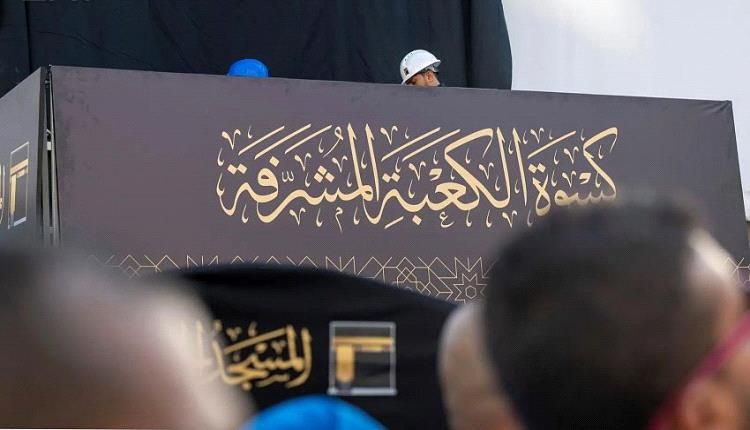 كِسْوَةُ الكَعْبَةِ المُشَرَّفَة
المسجد